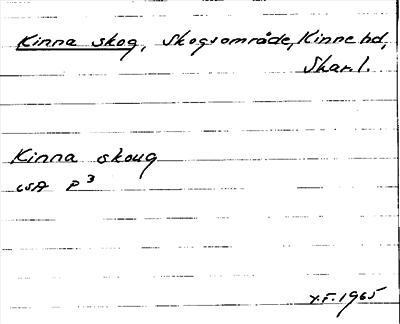 Kinna skog, Skogsområde, Kinne hd,
Skar.l.
Kinna skoug
LSA P3
Y.F. 1965